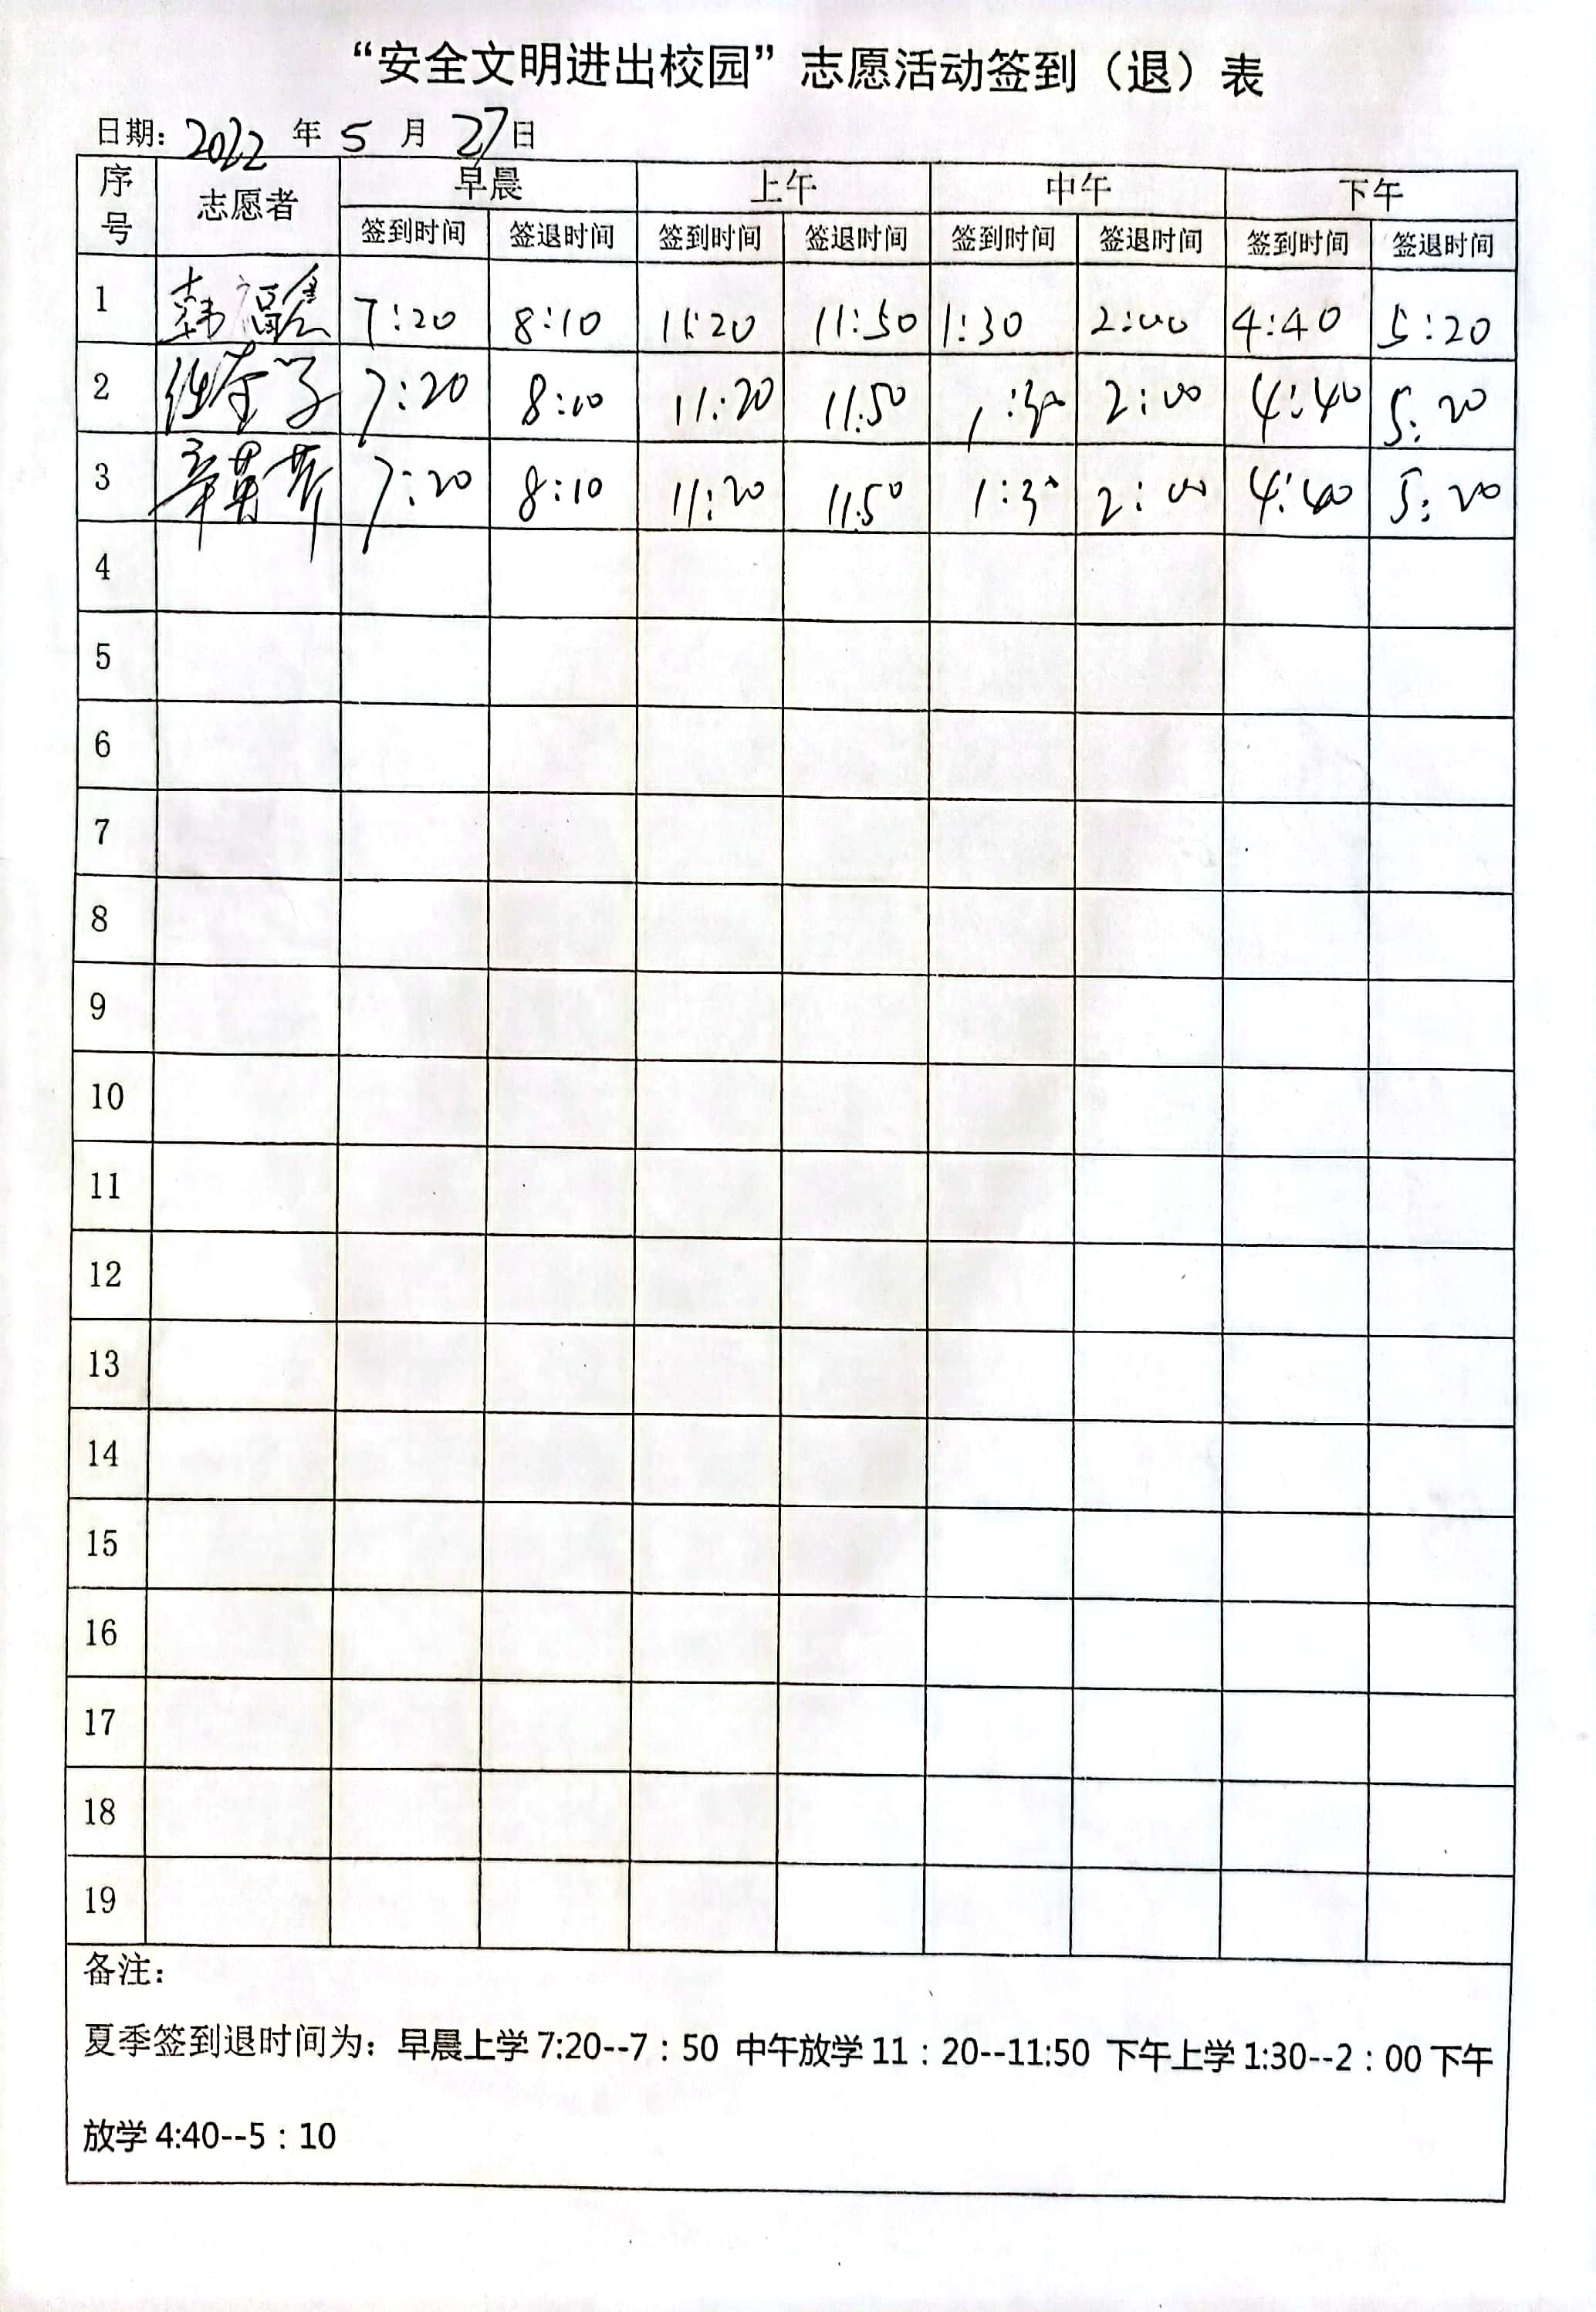 “安全文明进出校园”志愿活动签到（退）表
日期: 2022 年 5 月 27 日
序号 志愿者 早晨 上午 中午 下午
签到时间 签退时间 签到时间 签退时间 签到时间 签退时间 签到时间 签退时间
1 韩福鑫 7:20 8:10 11:20 11:50 1:30 2:00 4:40 5:20
2 7:20 8:10 11:20 11:50 1:30 2:00 4:40 5:20
3 辛英 7:20 8:10 11:20 11:50 1:30 2:00 4:40 5:20
4
5
6
7
8
9
10
11
12
13
14
15
16
17
18
19
备注：
夏季签到退时间为：早晨上学 7:20--7：50 中午放学 11：20--11:50 下午上学 1:30--2：00 下午
放学 4:40--5：10